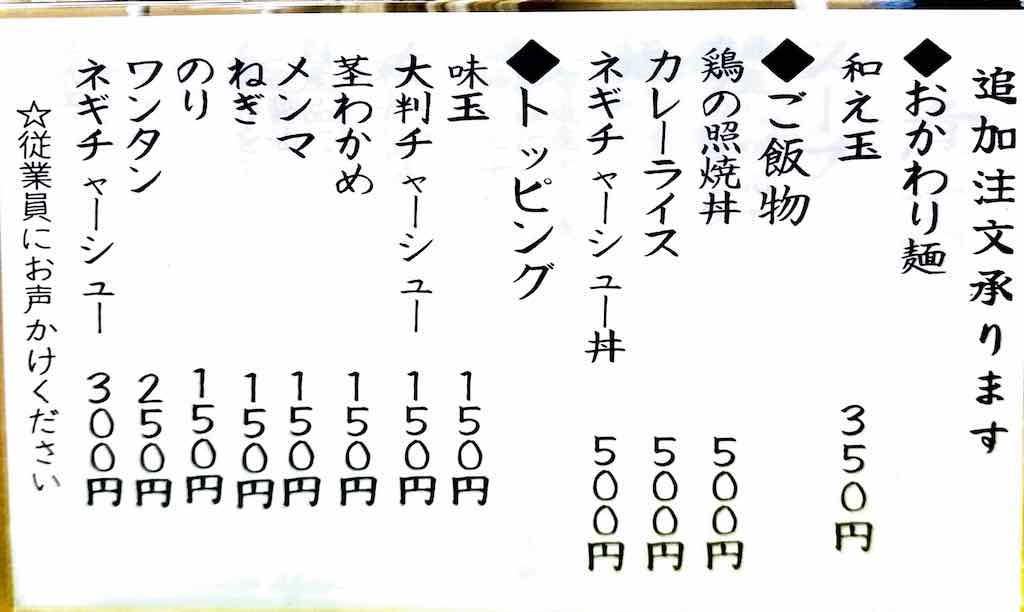 追加注文承ります
◆おかわり麺
和え玉 350円
◆ご飯物
鶏の照焼丼 500円
カレーライス 500円
ネギチャーシュー丼 500円
◆トッピング
味玉 150円
大判チャーシュー 150円
茎わかめ 150円
メンマ 150円
ねぎ 150円
のり 150円
ワンタン 250円
ネギチャーシュー 300円
☆従業員にお声かけください